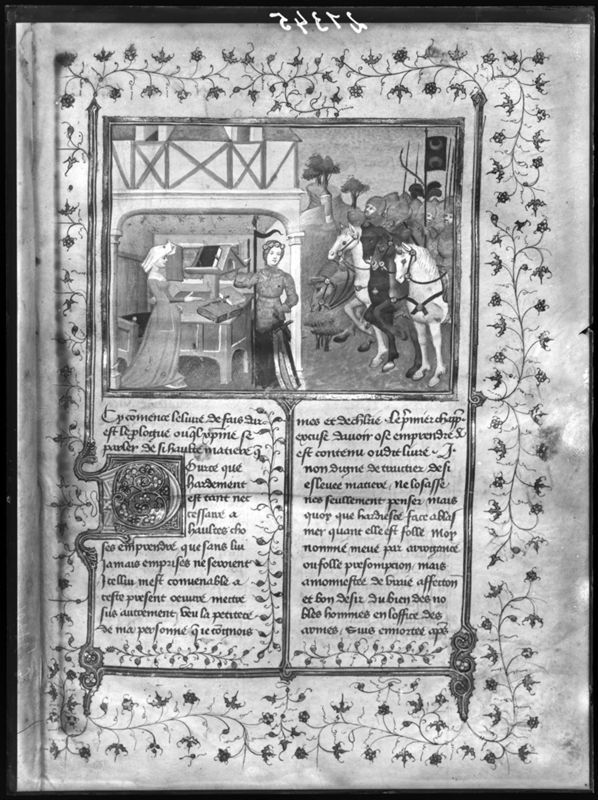 21345
Cy comence le livre de fais dar
est le plogue ouql xpine se
parler de si haulte matiere j
Pource que
hardement
est tant nec
cessaire a
haultes cho
ses emprendre que sans luy
jamais emprises ne seroient
Icelluy mest convenable a
ceste present oeuvre mettre
sus autrement veu la petitece
de ma personne que congnois
mes et de chlrie. Le pmier chapp
excuse davoir ose emprendre
est contenu oudit livre.
non digne de traictier de si
eslevee matiere, ne losasse
nes seullement penser mais
quoy que hardiesce face a blas
mer quant elle est folle moy
nommie meue par arrogance
ou folle presompcion, mais
amonnestee de vraie affection
et bon desir du bien des no
bles hommes en loffice des
armes, suis enhortee apres